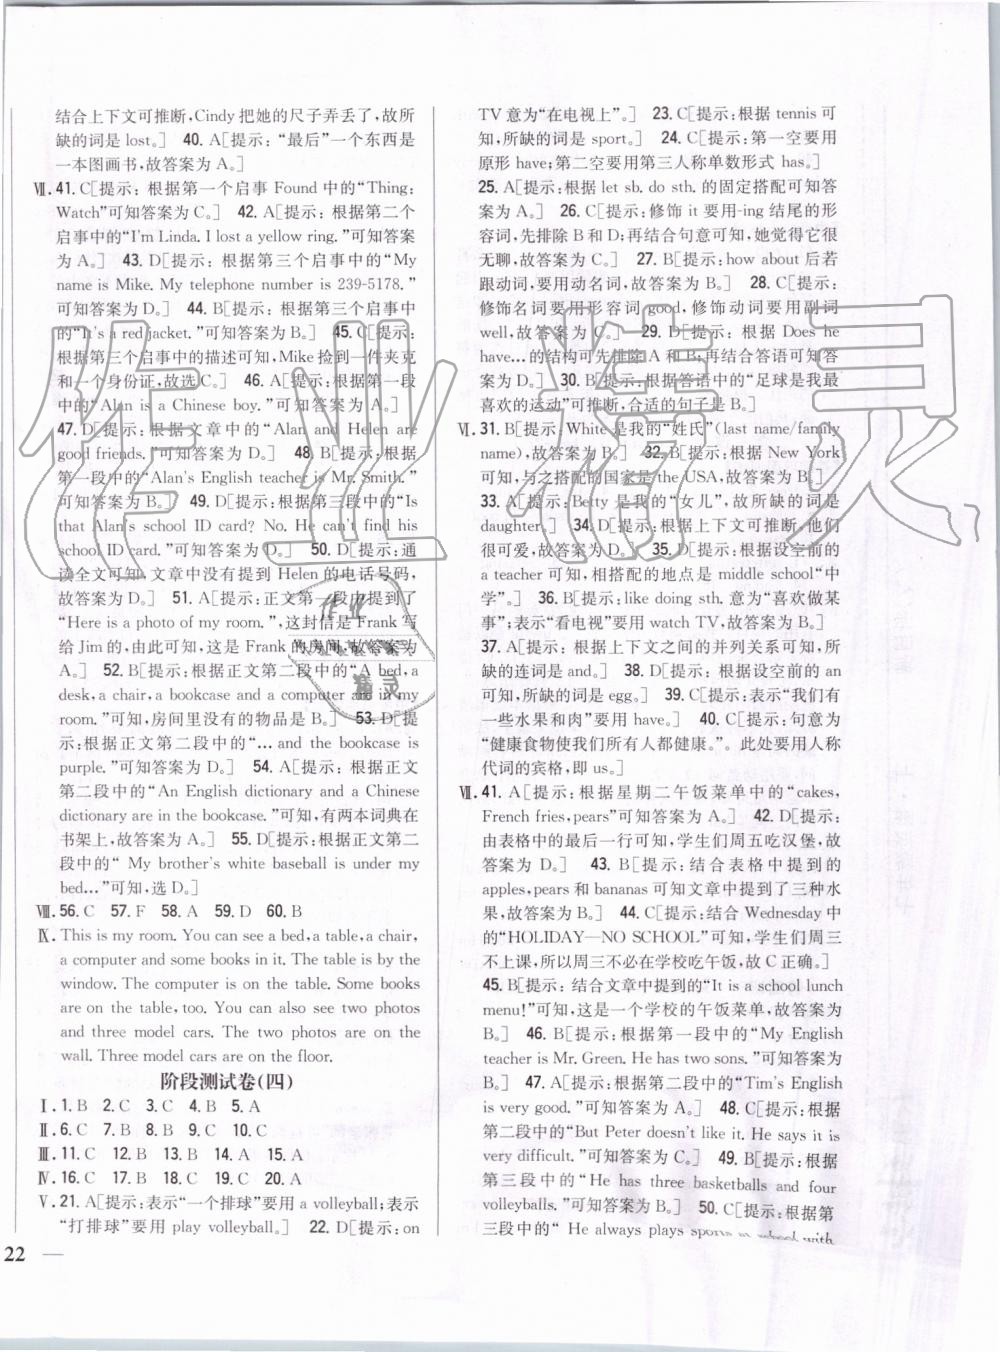 结合上下文可推断,Cindy 把她的尺子弄丢了,故所
缺的词是 lost。] 40. A[提示:“最后”一个东西是
一本图画书,故答案为 A。]
Ⅶ. 41. C[提示:根据第一个启事 Found 中的“Thing:
Watch”可知答案为 C。] 42. A[提示:根据第二个
启事中的“I'm Linda. I lost a yellow ring.”可知答案
为 A。] 43. D[提示:根据第三个启事中的“My
name is Mike. My telephone number is 239-5178.”
可知答案为 D。] 44. B[提示:根据第三个启事中
的“It's a red jacket.”可知答案为 B。] 45. C[提示:
根据第三个启事中的描述可知,Mike 捡到一件夹克
和一个身份证,故选 C。] 46. A[提示:根据第一段
中的“Alan is a Chinese boy.”可知答案为 A。]
47. D[提示:根据文章中的“Alan and Helen are
good friends.”可知答案为 D。] 48. B[提示:根据
第一段中的“Alan's English teacher is Mr. Smith.”
可知答案为 B。] 49. D[提示:根据第三段中的“Is
that Alan's school ID card? No. He can't find his
school ID card.”可知答案为 D。] 50. D[提示:通
读全文可知,文章中没有提到 Helen 的电话号码,
故答案为 D。] 51. A[提示:正文第一段中提到了
“Here is a photo of my room.”,这封信是 Frank 写
给 Jim 的,由此可知,这是 Frank 的房间,故答案为
A。] 52. B[提示:根据正文第二段中的“A bed, a
desk, a chair, a bookcase and a computer are in my
room.”可知,房间里没有的物品是 B。] 53. D[提
示:根据正文第二段中的“... and the bookcase is
purple.”可知答案为 D。] 54. A[提示:根据正文
第二段中的“An English dictionary and a Chinese
dictionary are in the bookcase.”可知,有两本词典在
书架上,故答案为 A。] 55. D[提示:根据正文第二
段中的“ My brother's white baseball is under my
bed...”可知,选 D。]
Ⅷ. 56. C 57. F 58. A 59. D 60. B
Ⅸ. This is my room. You can see a bed, a table, a chair,
a computer and some books in it. The table is by the
window. The computer is on the table. Some books
are on the table, too. You can also see two photos
and three model cars. The two photos are on the
wall. Three model cars are on the floor.
阶段测试卷(四)
Ⅰ. 1. B 2. C 3. C 4. B 5. A
Ⅱ. 6. C 7. B 8. B 9. C 10. C
Ⅲ. 11. C 12. B 13. B 14. A 15. A
Ⅳ. 16. C 17. B 18. C 19. C 20. A
Ⅴ. 21. A[提示:表示“一个排球”要用 a volleyball;表示
“打排球”要用 play volleyball。] 22. D[提示:on
22
TV 意为“在电视上”。] 23. C[提示:根据 tennis 可
知,所缺的词是 sport。] 24. C[提示:第一空要用
原形 have;第二空要用第三人称单数形式 has。]
25. A[提示:根据 let sb. do sth. 的固定搭配可知答
案为 A。] 26. C[提示:修饰 it 要用-ing 结尾的形
容词,先排除 B 和 D;再结合句意可知,她觉得它很
无聊,故答案为 C。] 27. B[提示:how about 后若
跟动词,要用动名词,故答案为 B。] 28. C[提示:
修饰名词要用形容词 good,修饰动词要用副词
well,故答案为 C。] 29. D[提示:根据 Does he
have...的结构可先排除 A 和 B;再结合答语可知答
案为 D。] 30. B[提示:根据答语中的“足球是我最
喜欢的运动”可推断,合适的句子是 B。]
Ⅵ. 31. B[提示:White 是我的“姓氏”(last name/family
name),故答案为 B。] 32. B[提示:根据 New York
可知,与之搭配的国家是 the USA,故答案为 B。]
33. A[提示:Betty 是我的“女儿”,故所缺的词是
daughter。] 34. D[提示:根据上下文可推断,他们
很可爱,故答案为 D。] 35. D[提示:根据设空前的
a teacher 可知,相搭配的地点是 middle school“中
学”。] 36. B[提示:like doing sth. 意为“喜欢做某
事”;表示“看电视”要用 watch TV,故答案为 B。]
37. A[提示:根据上下文之间的并列关系可知,所
缺的连词是 and。] 38. D[提示:根据设空前的 an
可知,所缺的词是 egg。] 39. C[提示:表示“我们有
一些水果和肉”要用 have。] 40. C[提示:句意为
“健康食物使我们所有人都健康。”。此处要用人称
代词的宾格,即 us。]
Ⅶ. 41. A[提示:根据星期二午饭菜单中的“cakes,
French fries, pears”可知答案为 A。] 42. D[提示:
由表格中的最后一行可知,学生们周五吃汉堡,故
答案为 D。] 43. B[提示:结合表格中提到的
apples, pears 和 bananas 可知文章中提到了三种水
果,故答案为 B。] 44. C[提示:结合 Wednesday 中
的“HOLIDAY—NO SCHOOL”可知,学生们周三
不上课,所以周三不必在学校吃午饭,故 C 正确。]
45. B[提示:结合文章中提到的“It is a school lunch
menu!”可知,这是一个学校的午饭菜单,故答案为
B。] 46. B[提示:根据第一段中的“My English
teacher is Mr. Green. He has two sons.”可知答案为
B。] 47. A[提示:根据第二段中的“Tim's English
is very good.”可知答案为 A。] 48. C[提示:根据
第二段中的“But Peter doesn't like it. He says it is
very difficult.”可知答案为 C。] 49. B[提示:根据
第三段中的“He has three basketballs and four
volleyballs.”可知答案为 B。] 50. C[提示:根据第
三段中的“ He always plays sports in school with
作业精灵
作业
精灵